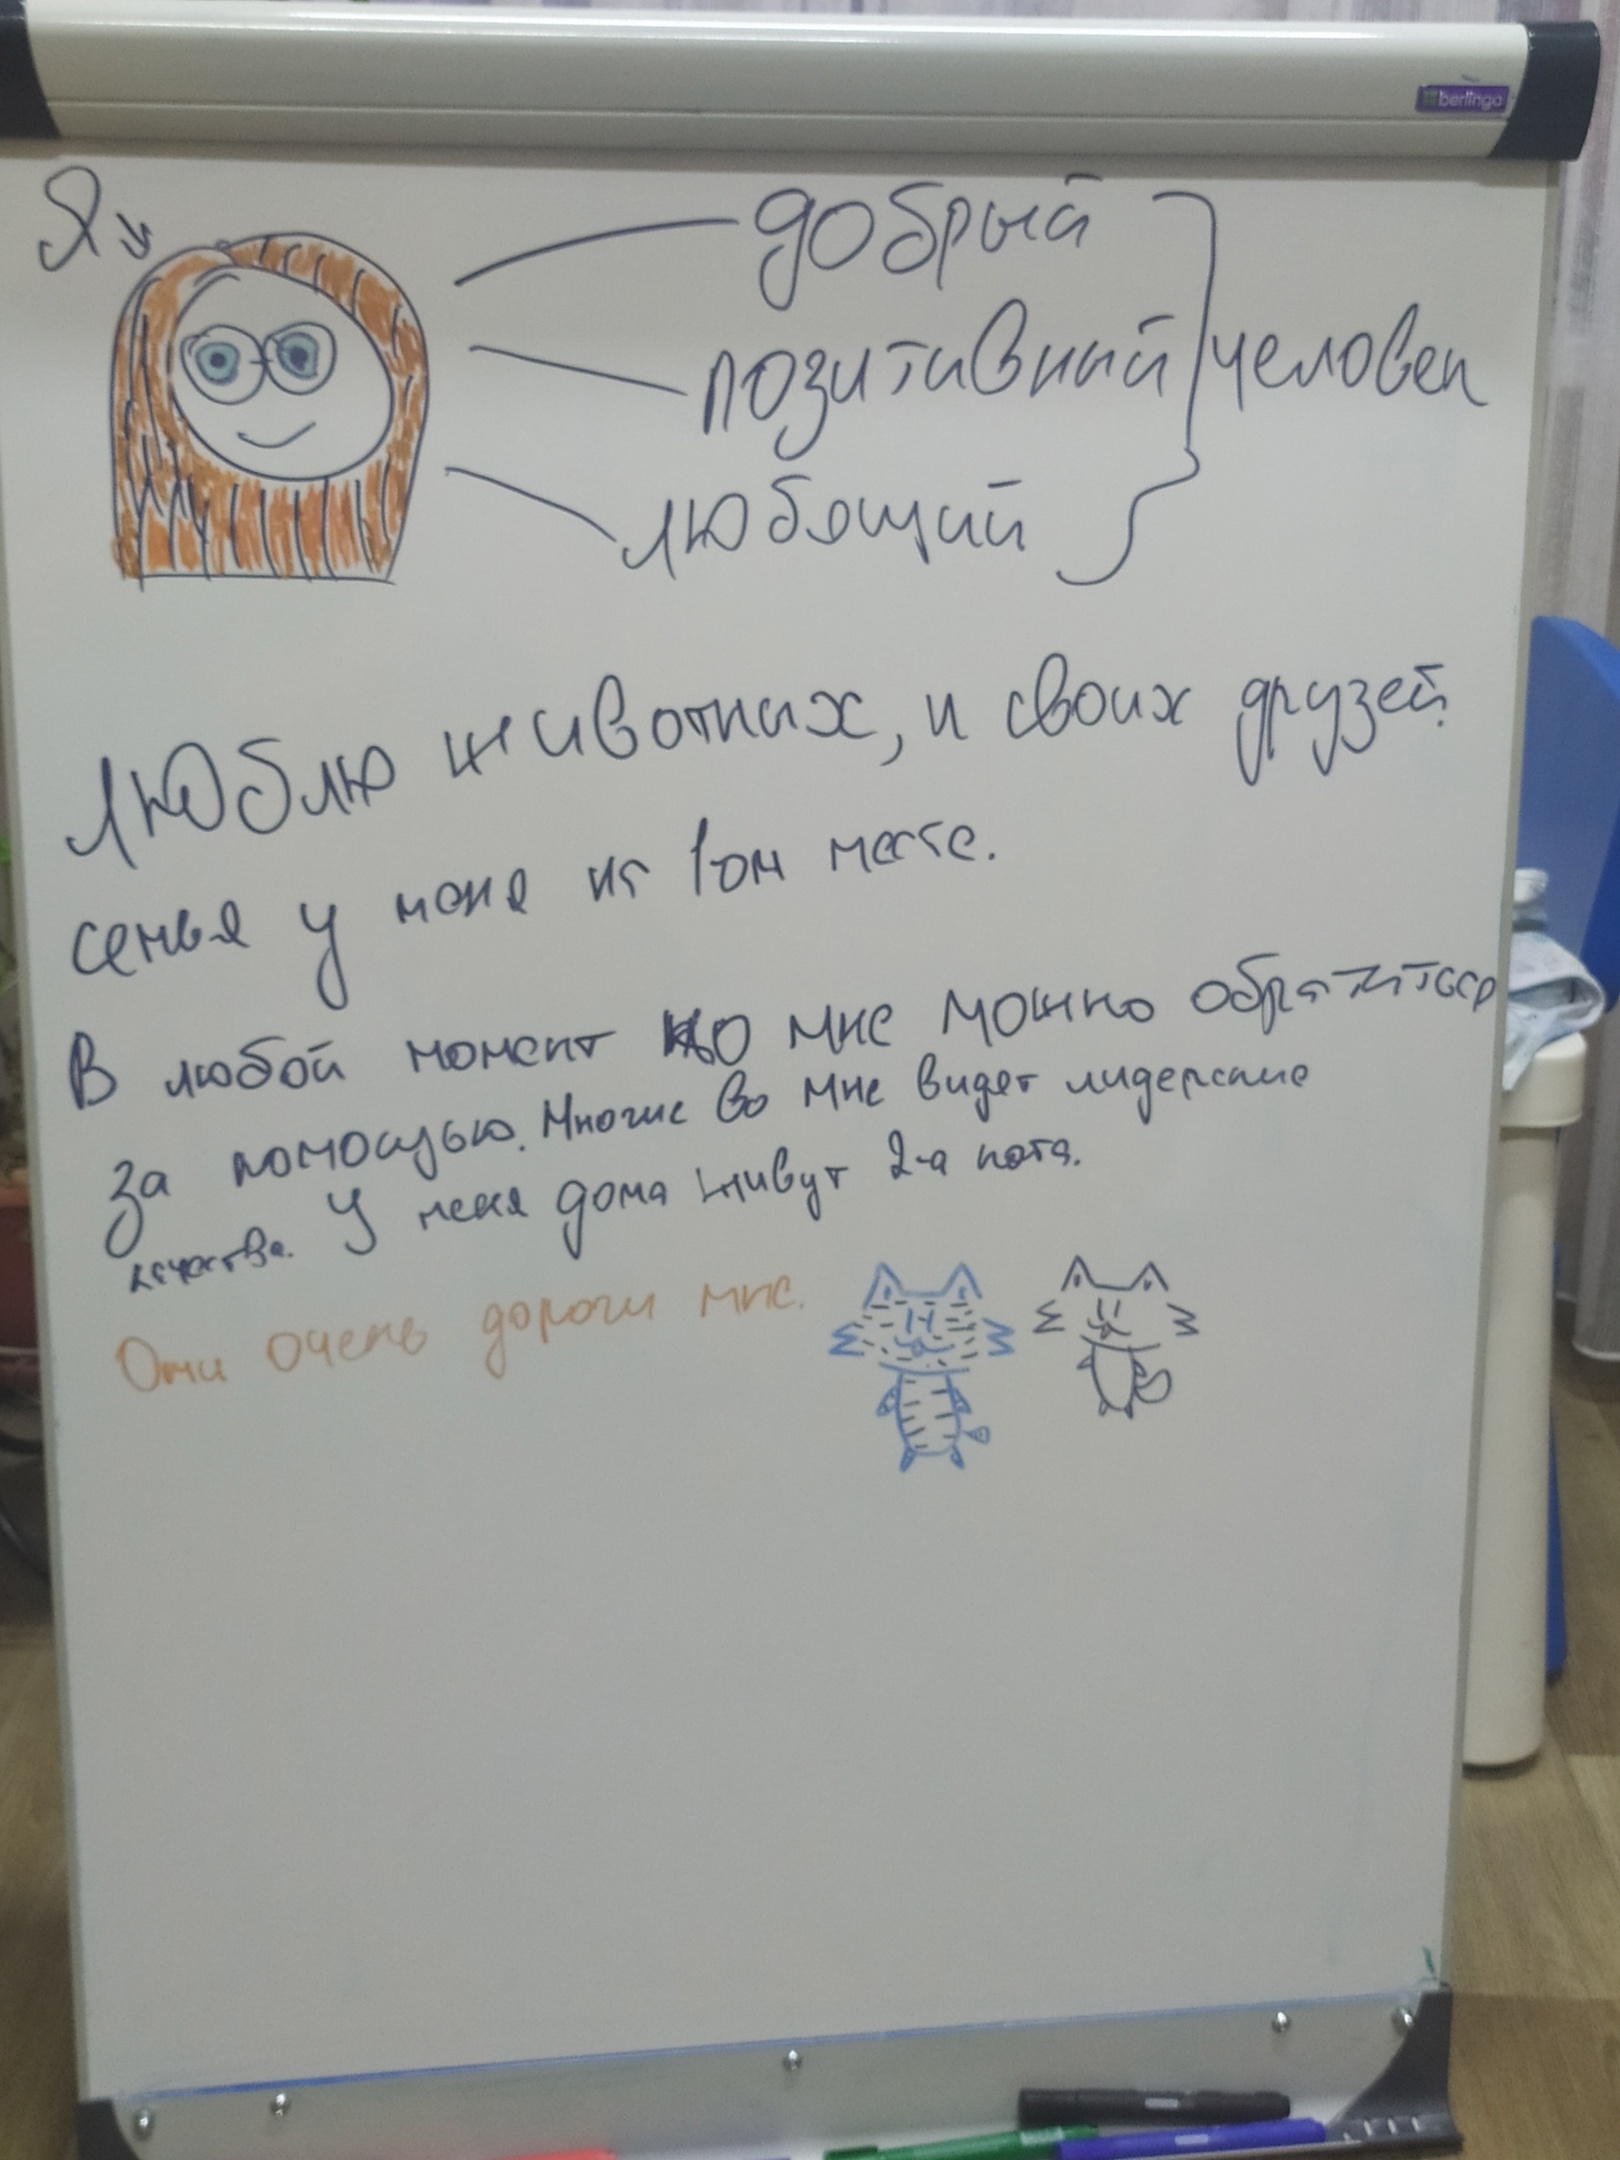 berlingo
Я
добрый
позитивный
любящий
человек
Люблю животных, и своих друзей.
семья у меня на 1ом месте.
В любой момент ко мне можно обратиться
за помощью. Многие во мне видят лидерские
качества. У меня дома живут 2-а кота.
Они очень дороги мне.